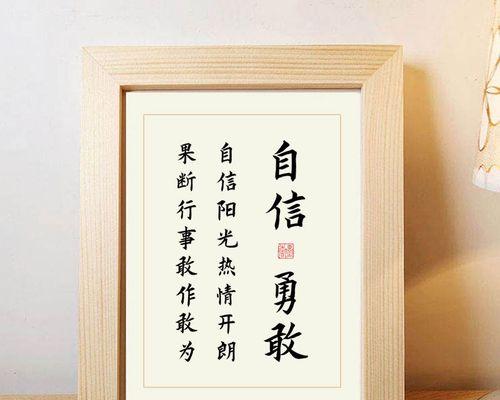 自信 勇敢
自信阳光热情开朗
果断行事敢作敢为